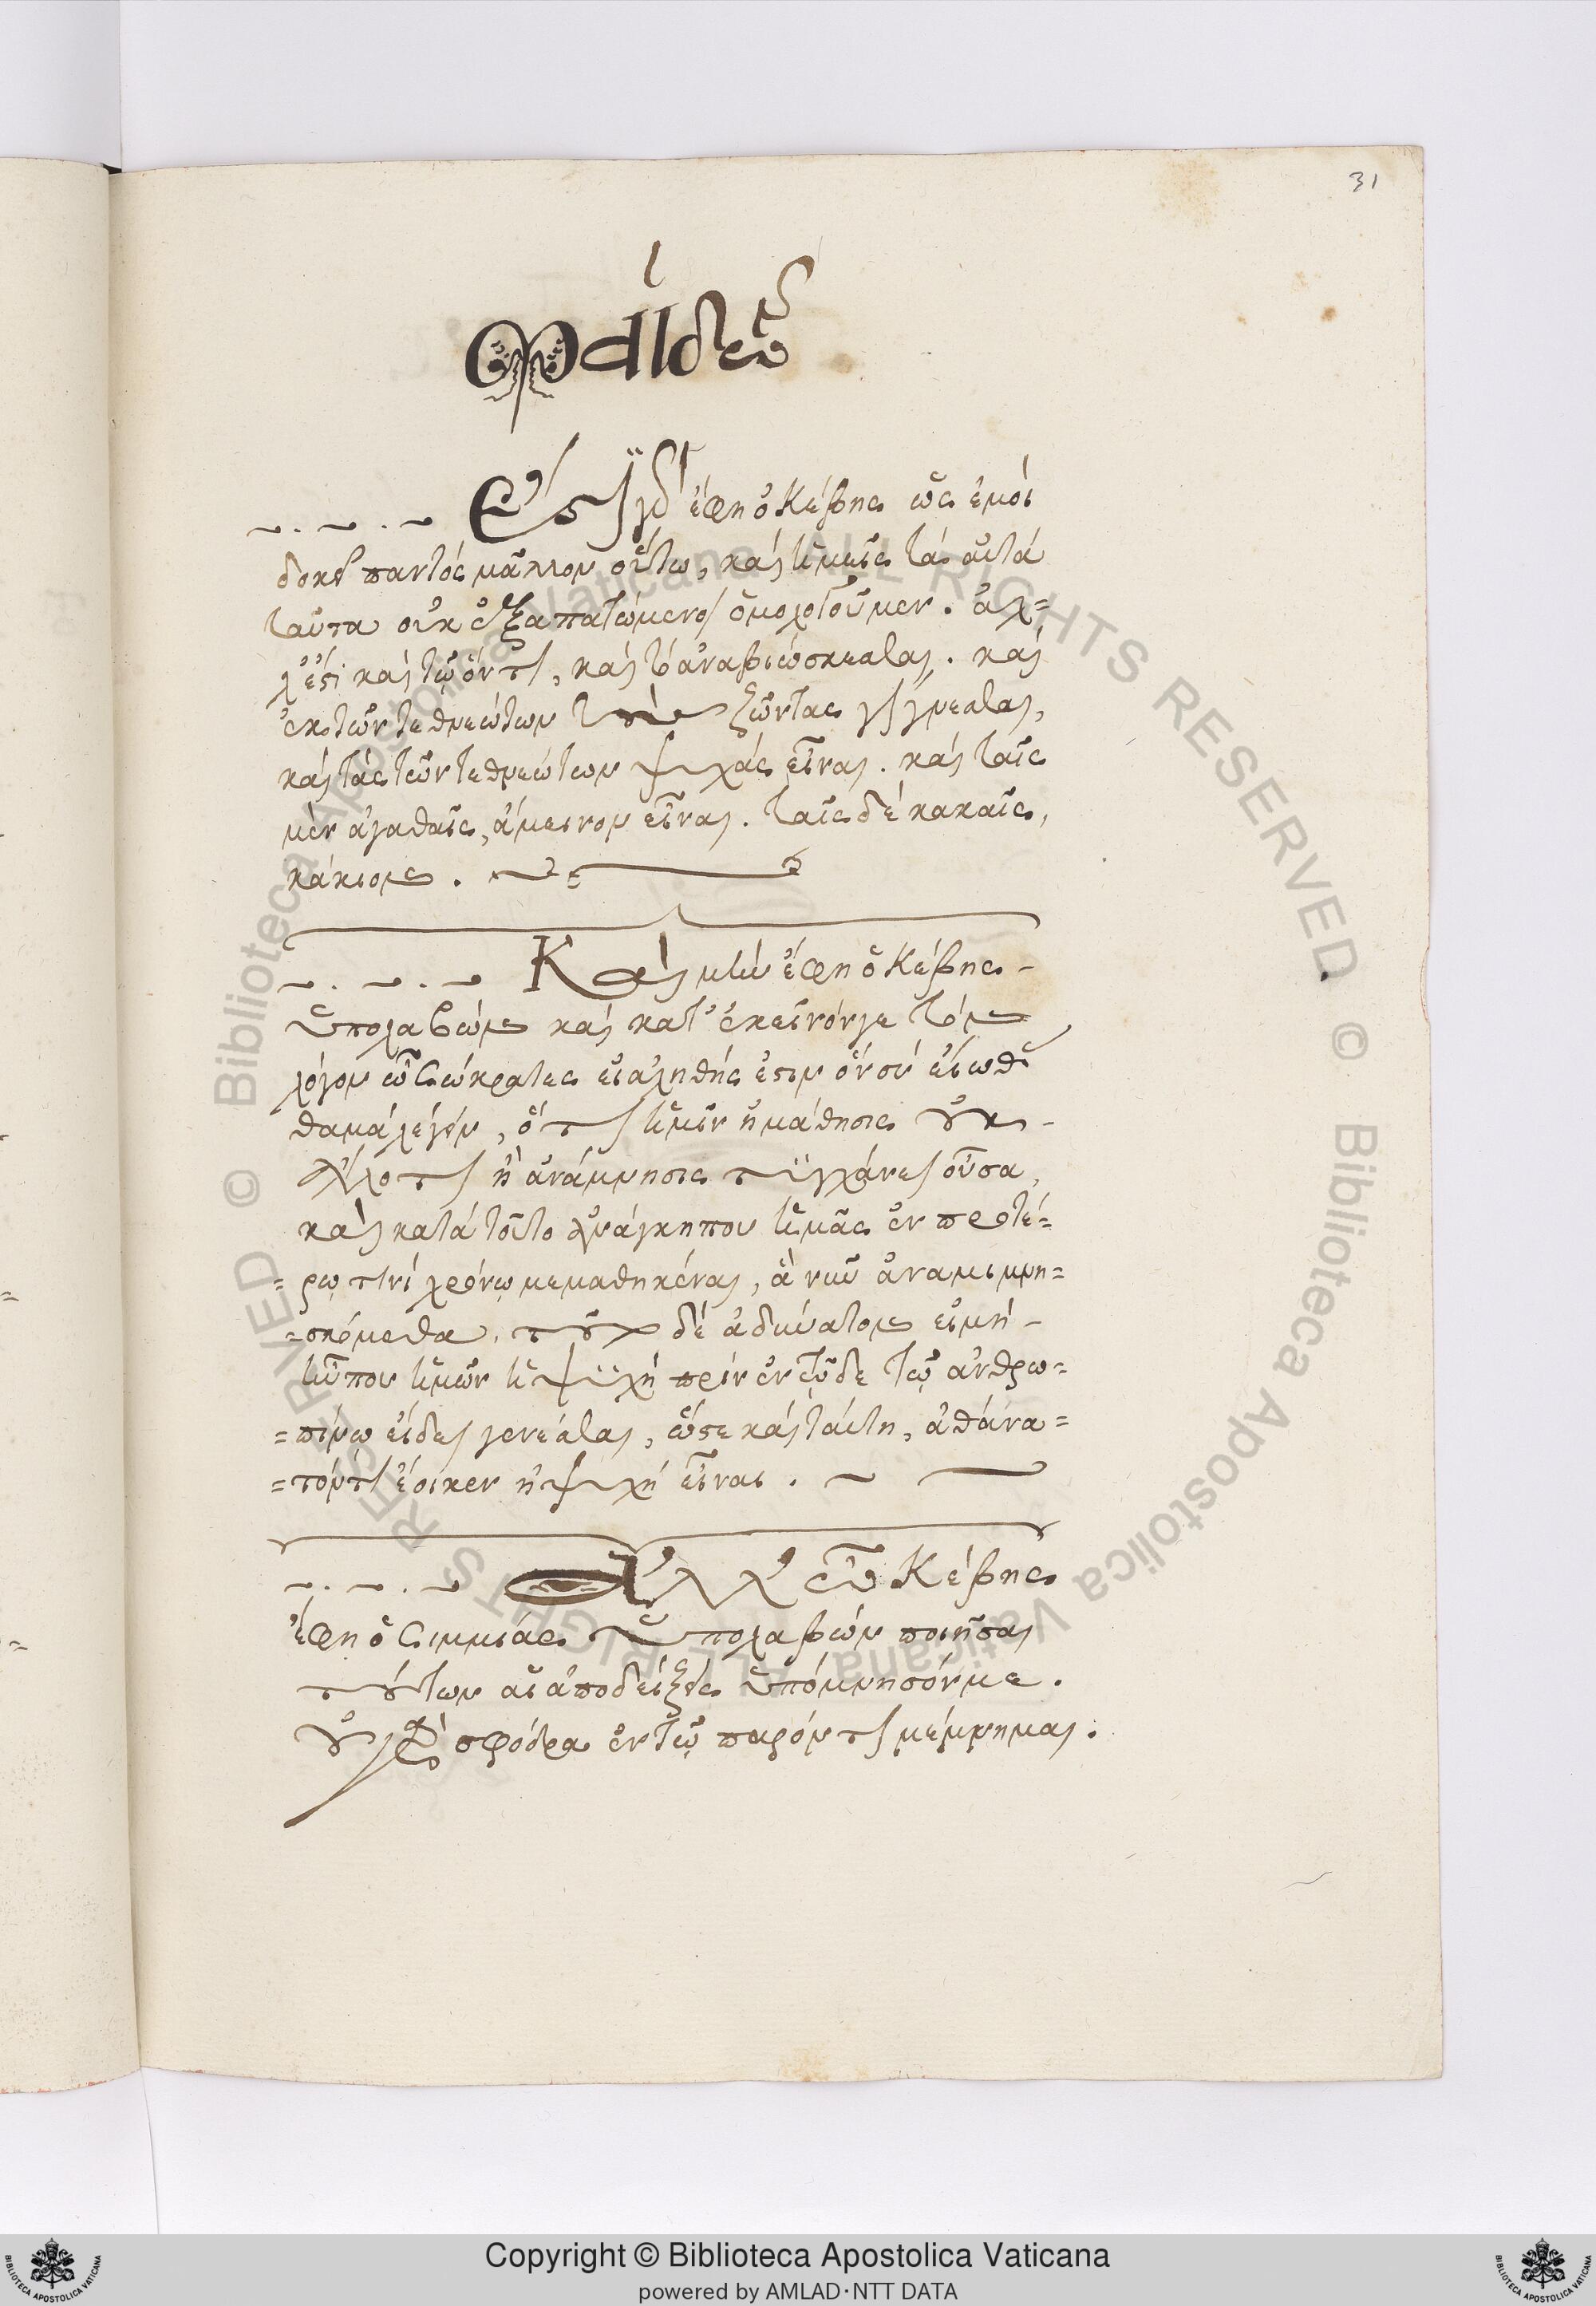 31
Φαίδων
Ἔστι γάρ ἔφη ὁ Κέβης ὡς ἐμοὶ
δοκεῖ παντὸς μᾶλλον οὕτω, καὶ ἡμεῖς τὰ αὐτὰ
ταῦτα οὐκ ἐξαπατώμενοι ὁμολογοῦμεν. ἀλ=
λ' ἔστι καὶ τῷ ὄντι, καὶ τὸ ἀναβιώσκεσθαι. καὶ
ἐκ τῶν τεθνεώτων τοὺς ζῶντας γίγνεσθαι,
καὶ τὰς τῶν τεθνεώτων ψυχὰς εἶναι. καὶ ταῖς
μὲν ἀγαθαῖς, ἄμεινον εἶναι. ταῖς δὲ κακαῖς,
κάκιον.
Καὶ μὴν ἔφη ὁ Κέβης
ὑπολαβών καὶ κατ' ἐκεῖνόν γε τὸν
λόγον ὦ Σώκρατες εἰ ἀληθής ἐστιν ὃν σὺ εἴωθας
θαμὰ λέγειν, ὅτι ἡμῖν ἡ μάθησις οὐκ
ἄλλο τι ἢ ἀνάμνησις τυγχάνει οὖσα,
καὶ κατὰ τοῦτο ἀνάγκη που ἡμᾶς ἐν προτέ=
=ρῳ τινὶ χρόνῳ μεμαθηκέναι, ἃ νῦν ἀναμιμνη=
=σκόμεθα. τοῦτο δὲ ἀδύνατον εἰ μὴ
ἦν που ἡμῶν ἡ ψυχὴ πρὶν ἐν τῷδε τῷ ἀνθρω=
=πίνῳ εἴδει γενέσθαι, ὥστε καὶ ταύτῃ, ἀθάνα=
=τόν τι ἔοικεν ἡ ψυχὴ εἶναι.
Ἀλλ' ὦ Κέβης
ἔφη ὁ Σιμμίας ὑπολαβών ποιῆσαι
τούτων αἱ ἀποδείξεις ὑπόμνησόν με.
οὐ γὰρ σφόδρα ἐν τῷ παρόντι μέμνημαι.
Copyright © Biblioteca Apostolica Vaticana
powered by AMLAD·NTT DATA